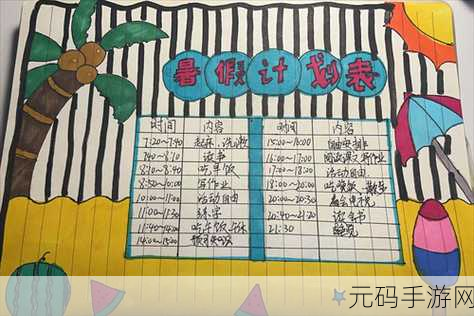 暑假计划表
时间 内容 时间 内容
7:20~7:40 起床、洗漱 15:00~16:00 自由安排
7:40~8:10 读书 16:00~17:00 阅读课文 写作业
8:10~8:40 吃早饭 17:00~18:00 活动自由
8:50~10:00 写作业 18:00~20:00 吃晚饭、散步
10:00~11:00 活动自由 20:00~20:30 看会电视
11:00~11:30 练字 20:40~21:20 读会书
11:40~14:00 吃午饭 午休 21:30 睡觉
14:00~15:00
元码手游网